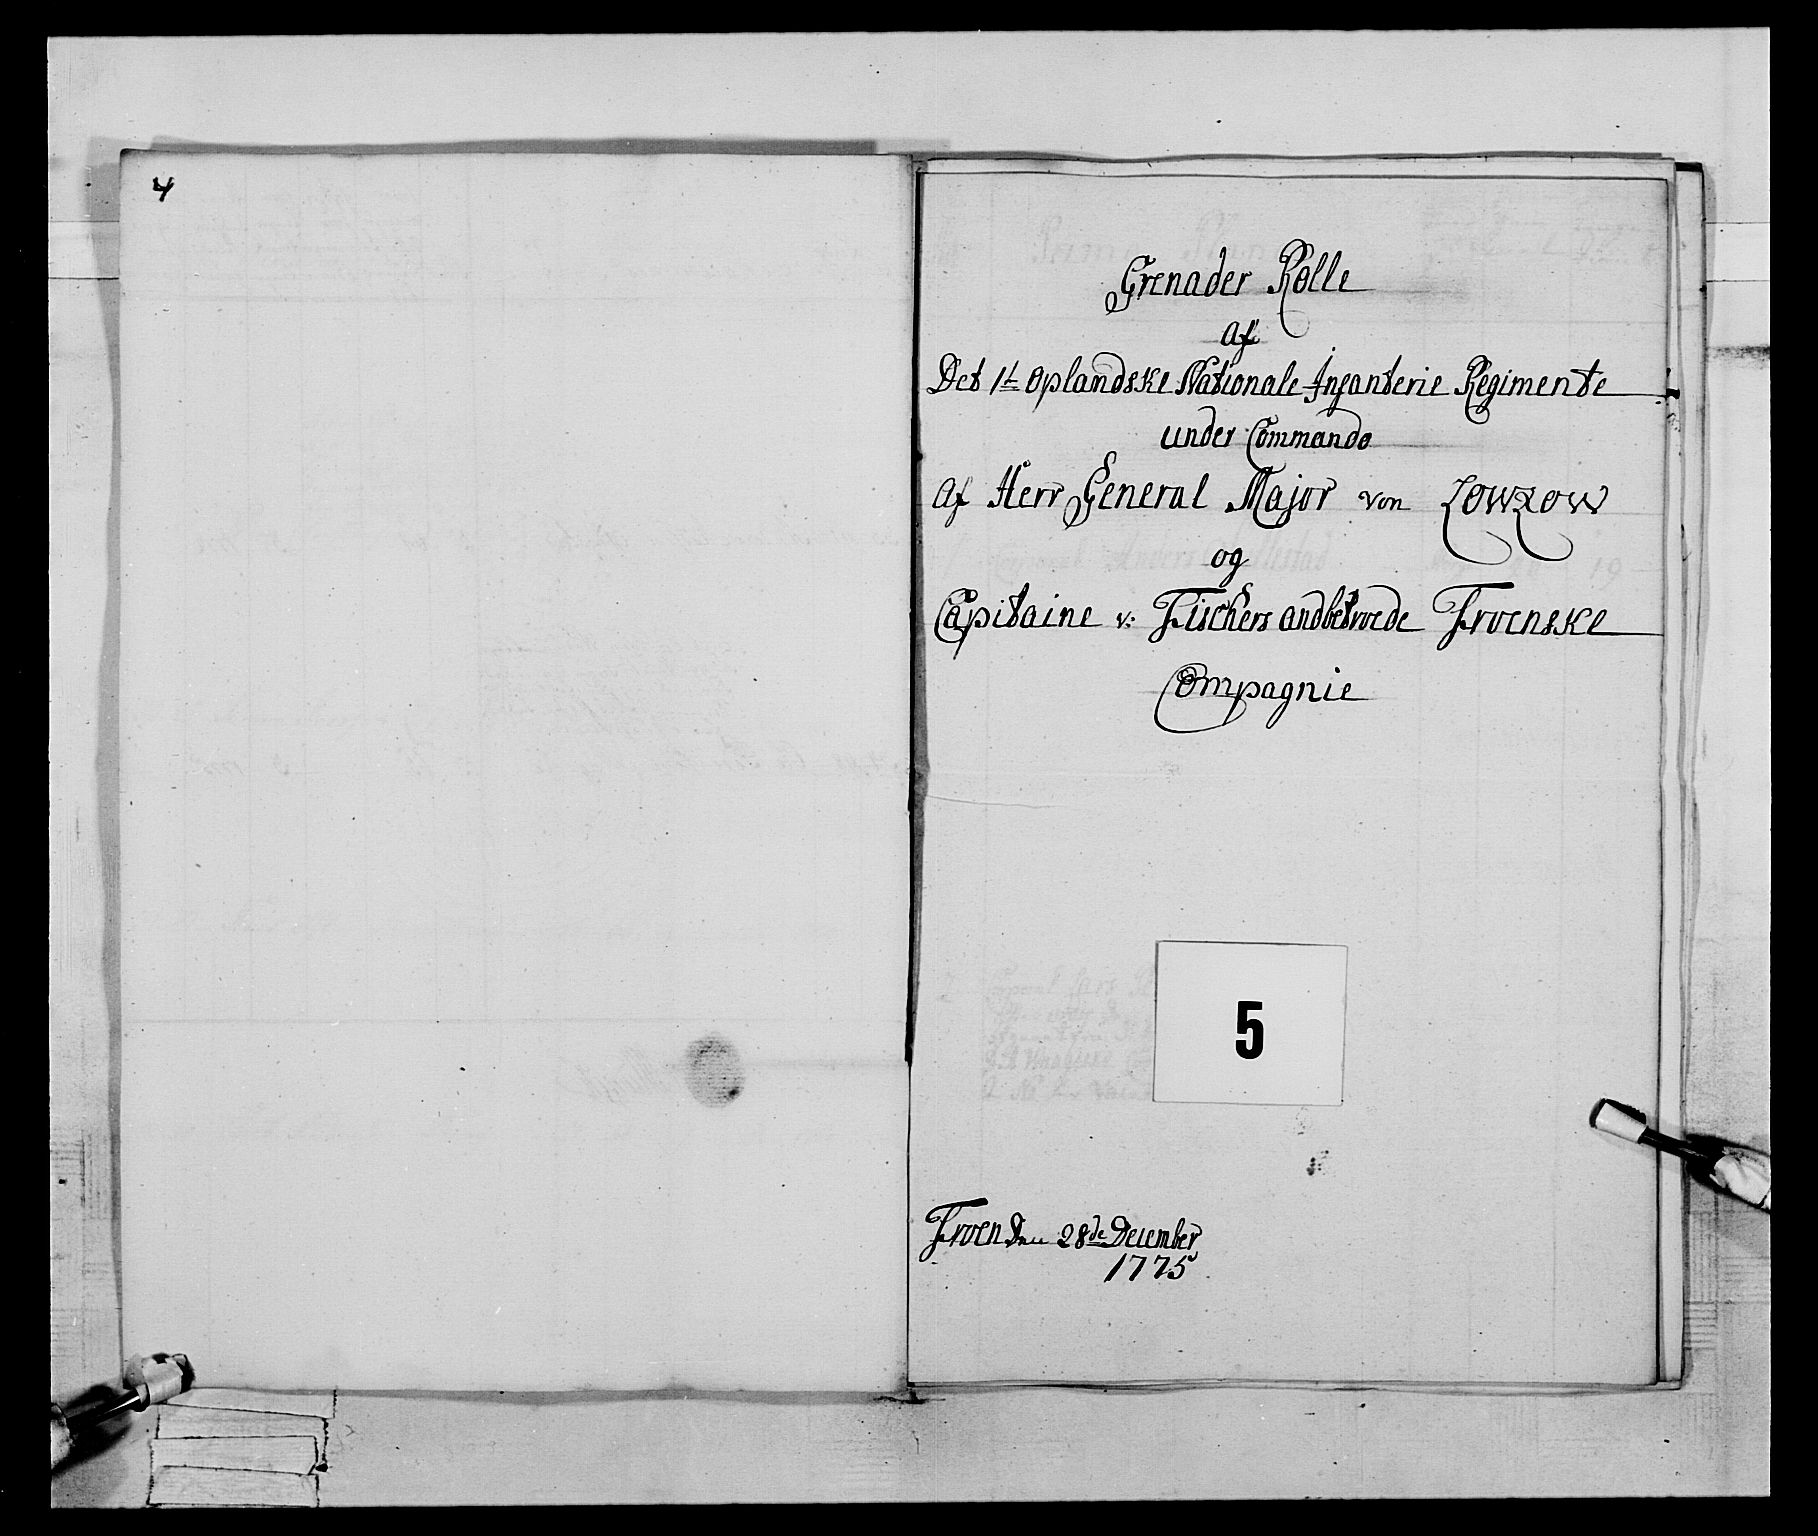 4
Grenader Rolle
Af
Det 1te Oplandske Nationale Infanterie Regimente
under Commando
Af Herr General Major von Lowzow
og
Capitaine v: Fischers andbetroede Froenske
Compagnie
5
Froen Den 28de December
1775